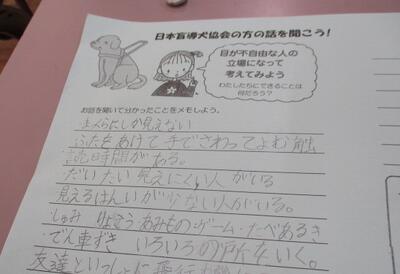 日本盲導犬協会の方の話を聞こう!
目が不自由な人の
立場になって
考えてみよう
わたしたちにできることは
何だろう?
お話を聞いて分かったことをメモしよう。
しか見えない
・ふたをあけて手でさわってよむ
時間がある。
・だいたい見えにくい人がいる
見えるはんいが少ない人がいる。
・しゅみ りょうり あみもの・ゲーム・たべあるき
・でん車ずき いろいろの所をいく。
友達といっしょに